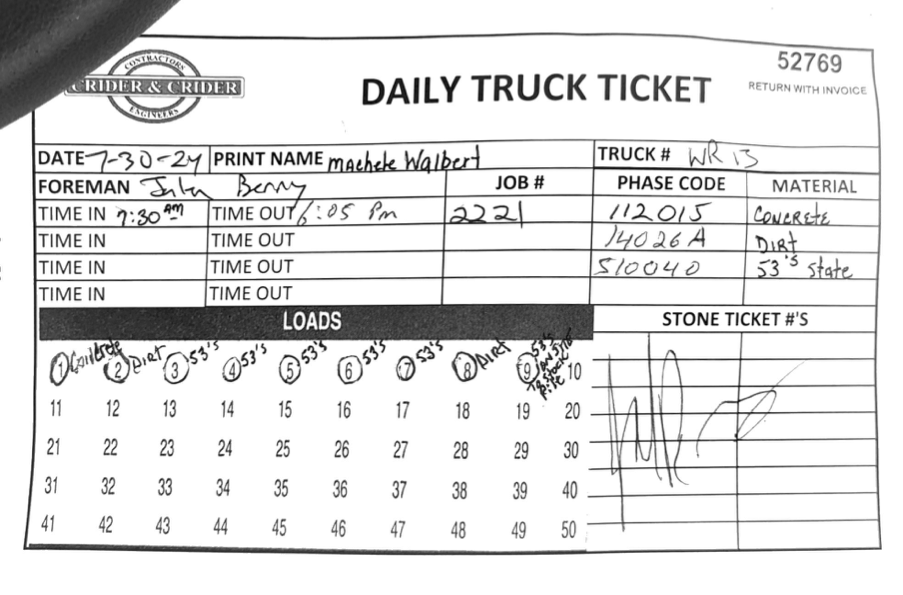 CONTRACTORS
CRIDER & CRIDER
ENGINEERS
DAILY TRUCK TICKET
52769
RETURN WITH INVOICE
DATE 7-30-24 PRINT NAME machele Walbert TRUCK # WR 13
FOREMAN Berry JOB # PHASE CODE MATERIAL
TIME IN 7:30 AM TIME OUT 6:05 Pm 2221 112015 CONCRETE
TIME IN TIME OUT 14026A DIRT
TIME IN TIME OUT 510040 53's State
TIME IN TIME OUT
LOADS STONE TICKET #'S
1 Concrete 2 Dirt 3 53's 4 53's 5 53's 6 53's 7 53's 8 Dirt 9 53's 10
11 12 13 14 15 16 17 18 19 20
21 22 23 24 25 26 27 28 29 30
31 32 33 34 35 36 37 38 39 40
41 42 43 44 45 46 47 48 49 50